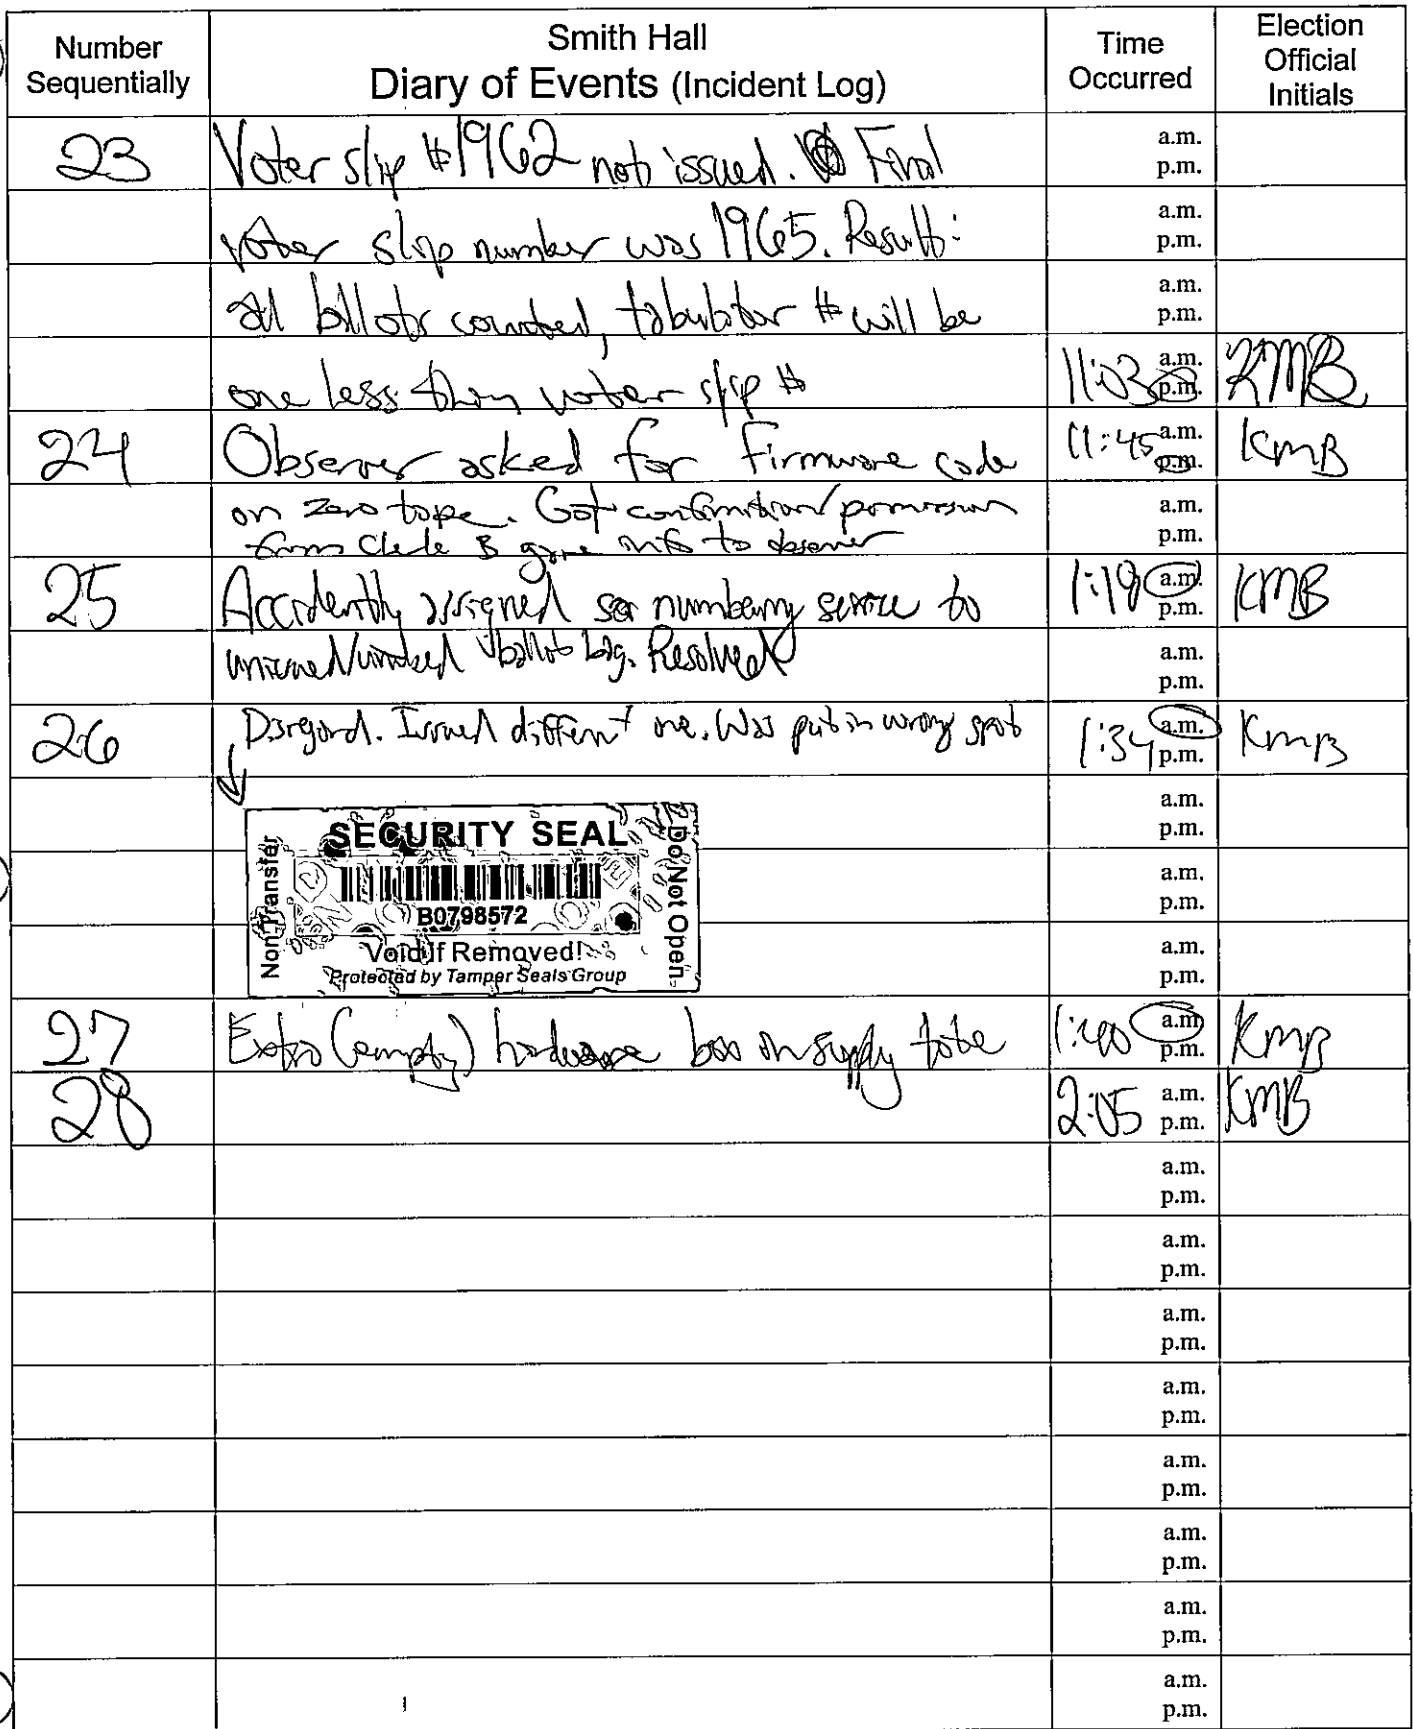 Number Sequentially
Smith Hall
Diary of Events (Incident Log)
Time Occurred
Election Official Initials
23 Voter slip #1962 not issued. Final a.m. p.m.
voter slip number was 1965. Result: a.m. p.m.
all ballots counted, tabulator # will be a.m. p.m.
one less than voter slip # 11:03 a.m. p.m. KMB
24 Observer asked for firmware code 11:45 a.m. p.m. KMB
on zero tape. Got confirmation/permission a.m. p.m.
from Clerk & gave info to observer
25 Accidently assigned numbering to 1:19 a.m. p.m. KMB
ballot bag. Resolved a.m. p.m.
26 Disregard. Issued different one. Was put in wrong spot 1:34 a.m. p.m. KMB
a.m. p.m.
SECURITY SEAL
Non Transfer
Do Not Open
B0798572
Void If Removed!
Protected by Tamper Seals Group
a.m. p.m.
a.m. p.m.
27 Extra (empty) hardware box on supply tote 1:40 a.m. p.m. KMB
28 2:05 a.m. p.m. KMB
a.m. p.m.
a.m. p.m.
a.m. p.m.
a.m. p.m.
a.m. p.m.
a.m. p.m.
a.m. p.m.
a.m. p.m.